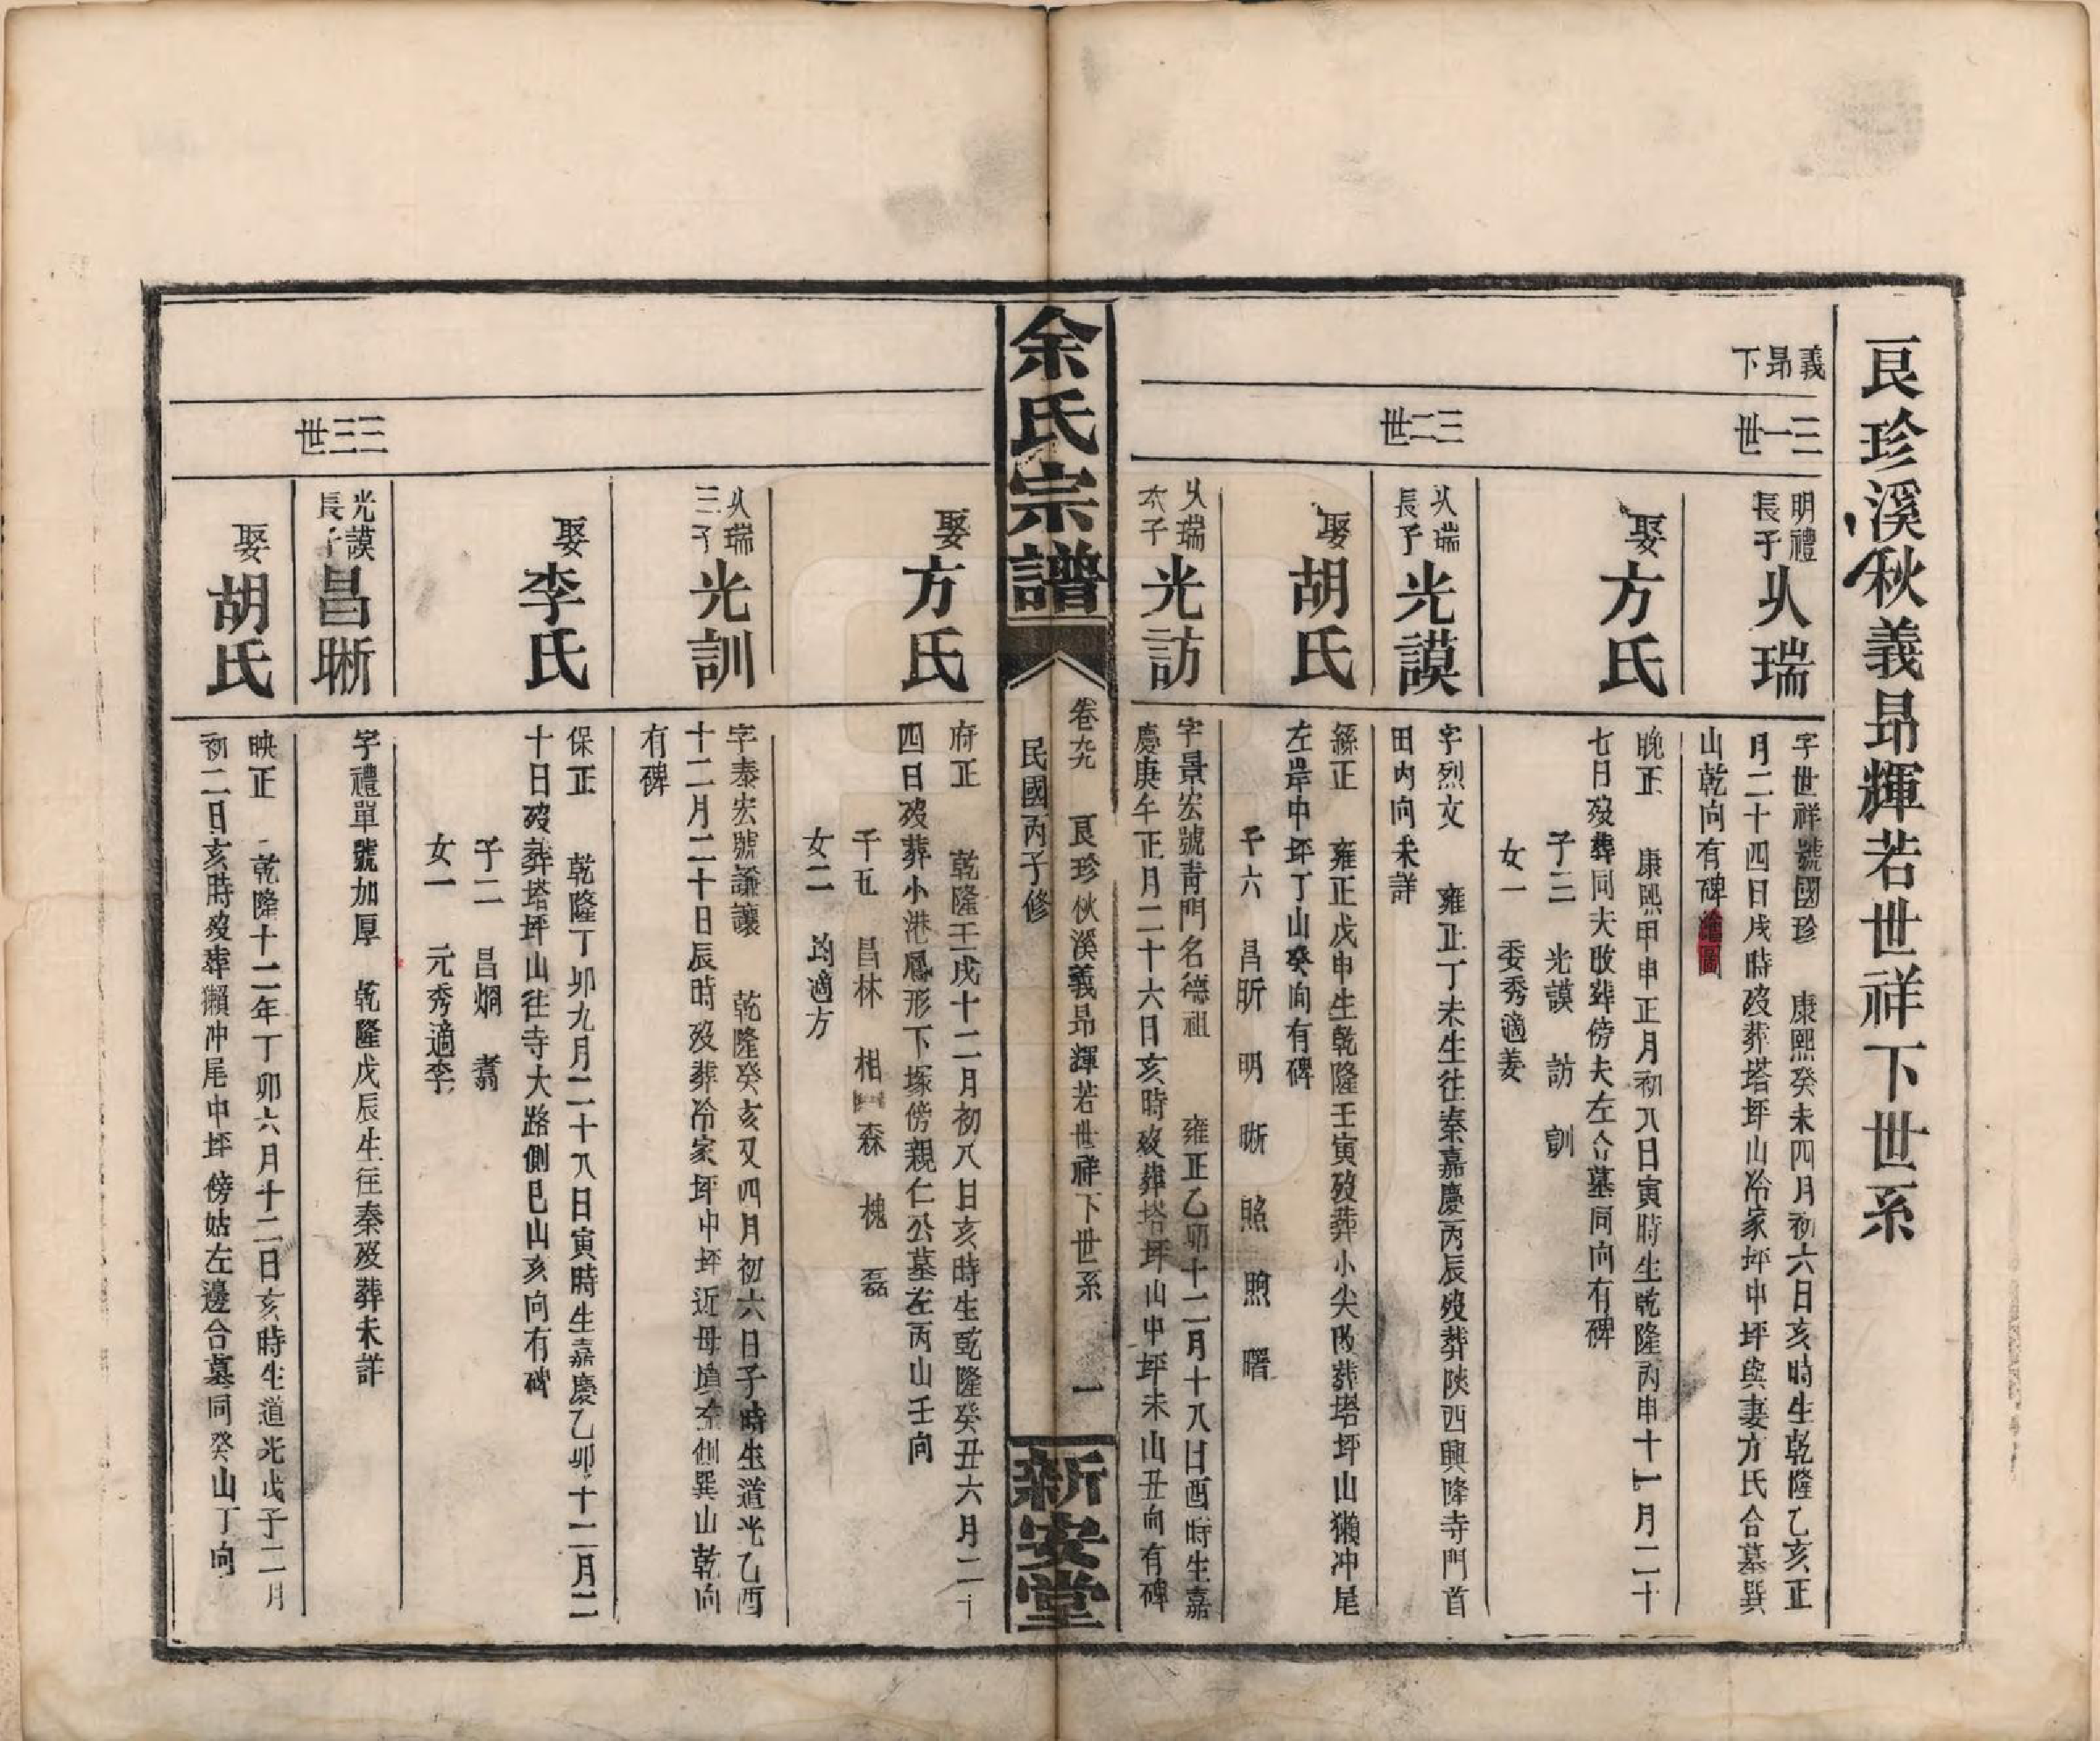 艮珍溪秋義昂輝若世祥下世系
義昂下
三一世
明禮長子 從瑞
字世祥號國珍 康熙癸未四月初六日亥時生乾隆乙亥正
月二十四日戌時歿葬塔坪山冷家坪中坪與妻方氏合墓巽
山乾向有碑繪圖
娶方氏
晚正 康熙甲申正月初八日寅時生乾隆丙申十一月二十
七日歿葬同夫改葬傍夫左合墓同向有碑
子三 光謨 訪 訓
女一 委秀適姜
三二世
從瑞長子 光謨
字烈文 雍正丁未生往秦嘉慶丙辰歿葬陝西興隆寺門首
田內向未詳
娶胡氏
繇正 雍正戊申生乾隆壬寅歿葬小尖改葬塔坪山獺冲尾
左岸中坪丁山癸向有碑
子六 昌昕 明 晰 照 煦 曙
從瑞次子 光訪
字景宏號青門名德祖 雍正乙卯十二月十八日酉時生嘉
慶庚午正月二十六日亥時歿葬塔坪山中坪未山丑向有碑
余氏宗譜
卷九 艮珍秋溪義昂輝若世祥下世系 一
民國丙子修
新安堂
娶方氏
府正 乾隆壬戌十二月初八日亥時生乾隆癸丑六月二十
四日歿葬小港鳳形下塚傍親仁公墓左丙山壬向
子五 昌林 相 森 槐 磊
女二 均適方
從瑞三子 光訓
字泰宏號謙讓 乾隆癸亥又四月初六日子時生道光乙酉
十二月二十日辰時歿葬冷家坪中坪近母墳左側巽山乾向
有碑
娶李氏
保正 乾隆丁卯九月二十八日寅時生嘉慶乙卯十二月二
十日歿葬塔坪山往寺大路側巳山亥向有碑
子二 昌烱 翥
女一 元秀適李
三三世
光謨長子 昌晰
字禮單號加厚 乾隆戊辰生往秦歿葬未詳
娶胡氏
映正 乾隆十二年丁卯六月十二日亥時生道光戊子二月
初二日亥時歿葬獺冲尾中坪傍姑左邊合墓同癸山丁向